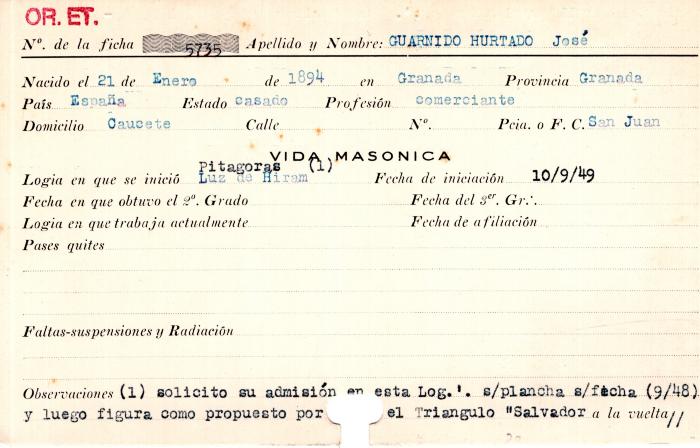 OR. ET.
Nº. de la ficha 5735 Apellido y Nombre: GUARNIDO HURTADO José
Nacido el 21 de Enero de 1894 en Granada Provincia Granada
País España Estado casado Profesión comerciante
Domicilio Caucete Calle Nº. Pcia. o F. C. San Juan
VIDA MASONICA
Pitagoras (1)
Logia en que se inició Luz de Hiram Fecha de iniciación 10/9/49
Fecha en que obtuvo el 2º. Grado Fecha del 3er. Gr∴.
Logia en que trabaja actualmente Fecha de afiliación
Pases quites
Faltas-suspensiones y Radiación
Observaciones (1) solicito su admisión en esta Log.'. s/plancha s/fecha (9/48)
y luego figura como propuesto por el Triangulo "Salvador a la vuelta//